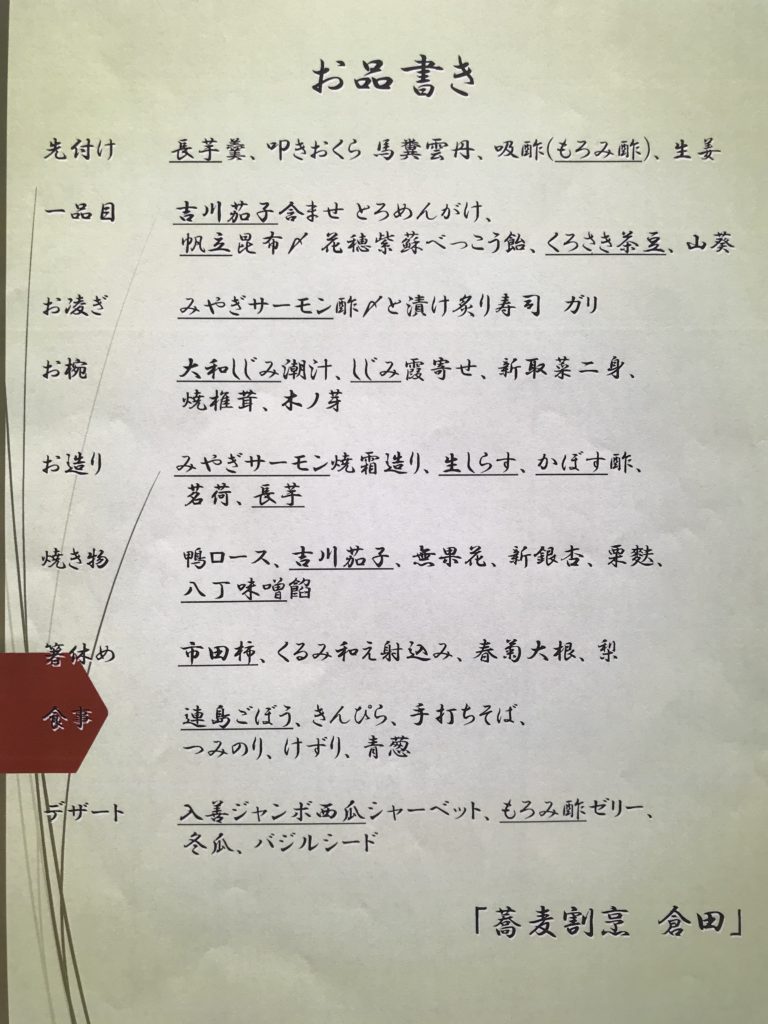 お品書き
先付け 長芋羹、叩きおくら 馬糞雲丹、吸酢(もろみ酢)、生姜
一品目 吉川茄子含ませ とろめんがけ、
帆立昆布〆 花穂紫蘇べっこう飴、くろさき茶豆、山葵
お凌ぎ みやぎサーモン酢〆と漬け炙り寿司 ガリ
お椀 大和しじみ潮汁、しじみ霞寄せ、新取菜二身、
焼椎茸、木ノ芽
お造り みやぎサーモン焼霜造り、生しらす、かぼす酢、
茗荷、長芋
焼き物 鴨ロース、吉川茄子、無果花、新銀杏、栗麩、
八丁味噌餡
箸休め 市田柿、くるみ和え射込み、春菊大根、梨
食事 連島ごぼう、きんぴら、手打ちそば、
つみのり、けずり、青葱
デザート 入善ジャンボ西瓜シャーベット、もろみ酢ゼリー、
冬瓜、バジルシード
「蕎麦割烹 倉田」